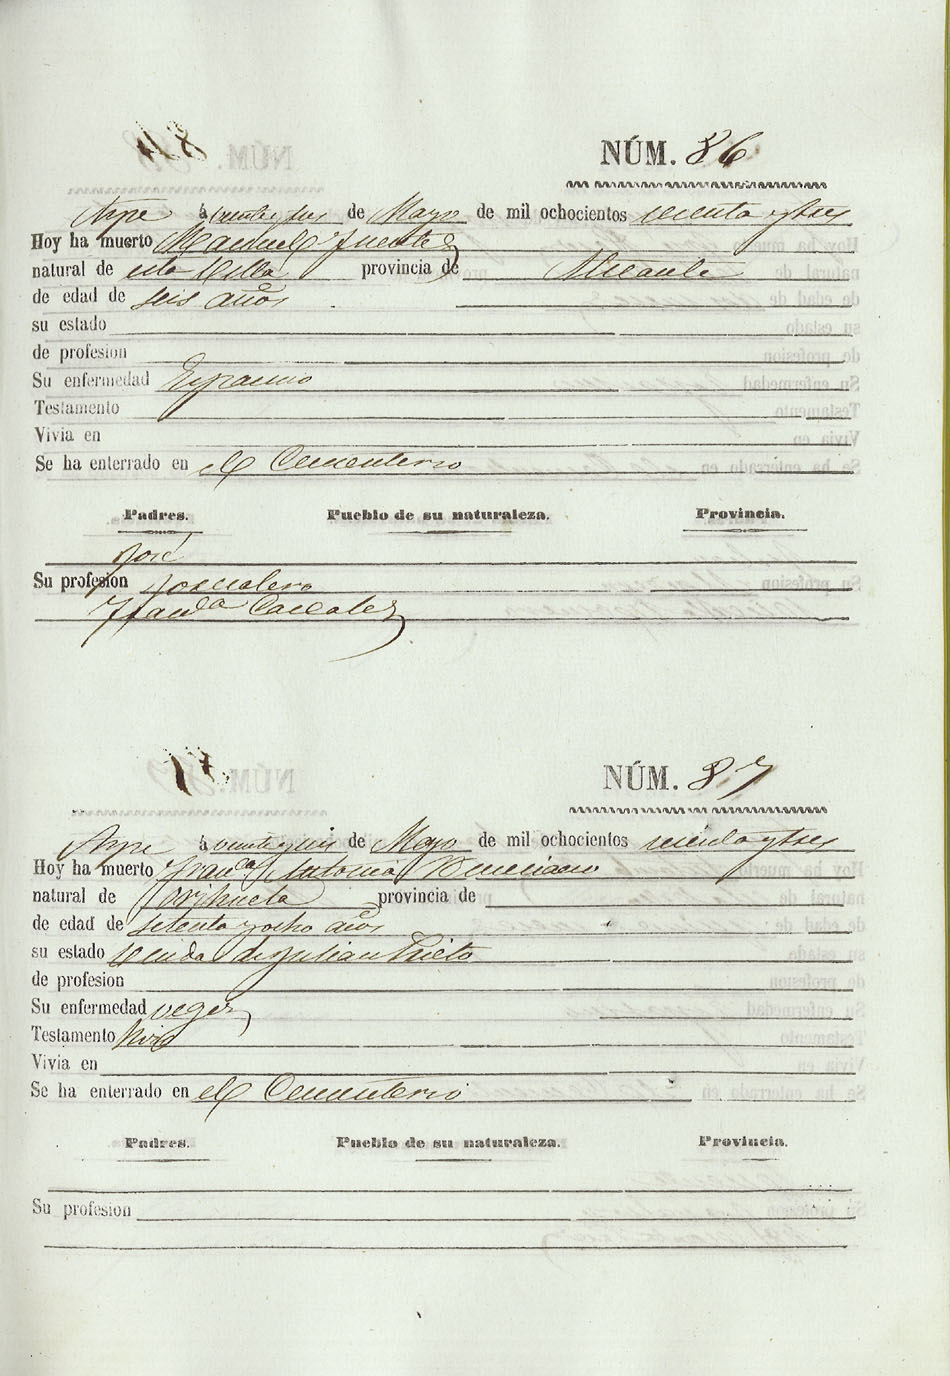 NÚM. 86
Aspe á veinte y dos de Mayo de mil ochocientos sesenta y tres
Hoy ha muerto Manuel Fuentes
natural de esta Villa provincia de Alicante
de edad de seis años
su estado
de profesion
Su enfermedad Espasmo
Testamento
Vivia en
Se ha enterrado en el Cementerio
Padres. Pueblo de su naturaleza. Provincia.
José
Su profesion Jornalero
Fran.ca
NÚM. 87
Aspe á veinte y seis de Mayo de mil ochocientos sesenta y tres
Hoy ha muerto Fran.ca Antonia
natural de Orihuela provincia de
de edad de setenta y ocho años
su estado viuda de Julian Prieto
de profesion
Su enfermedad vegez
Testamento hizo
Vivia en
Se ha enterrado en el Cementerio
Padres. Pueblo de su naturaleza. Provincia.
Su profesion